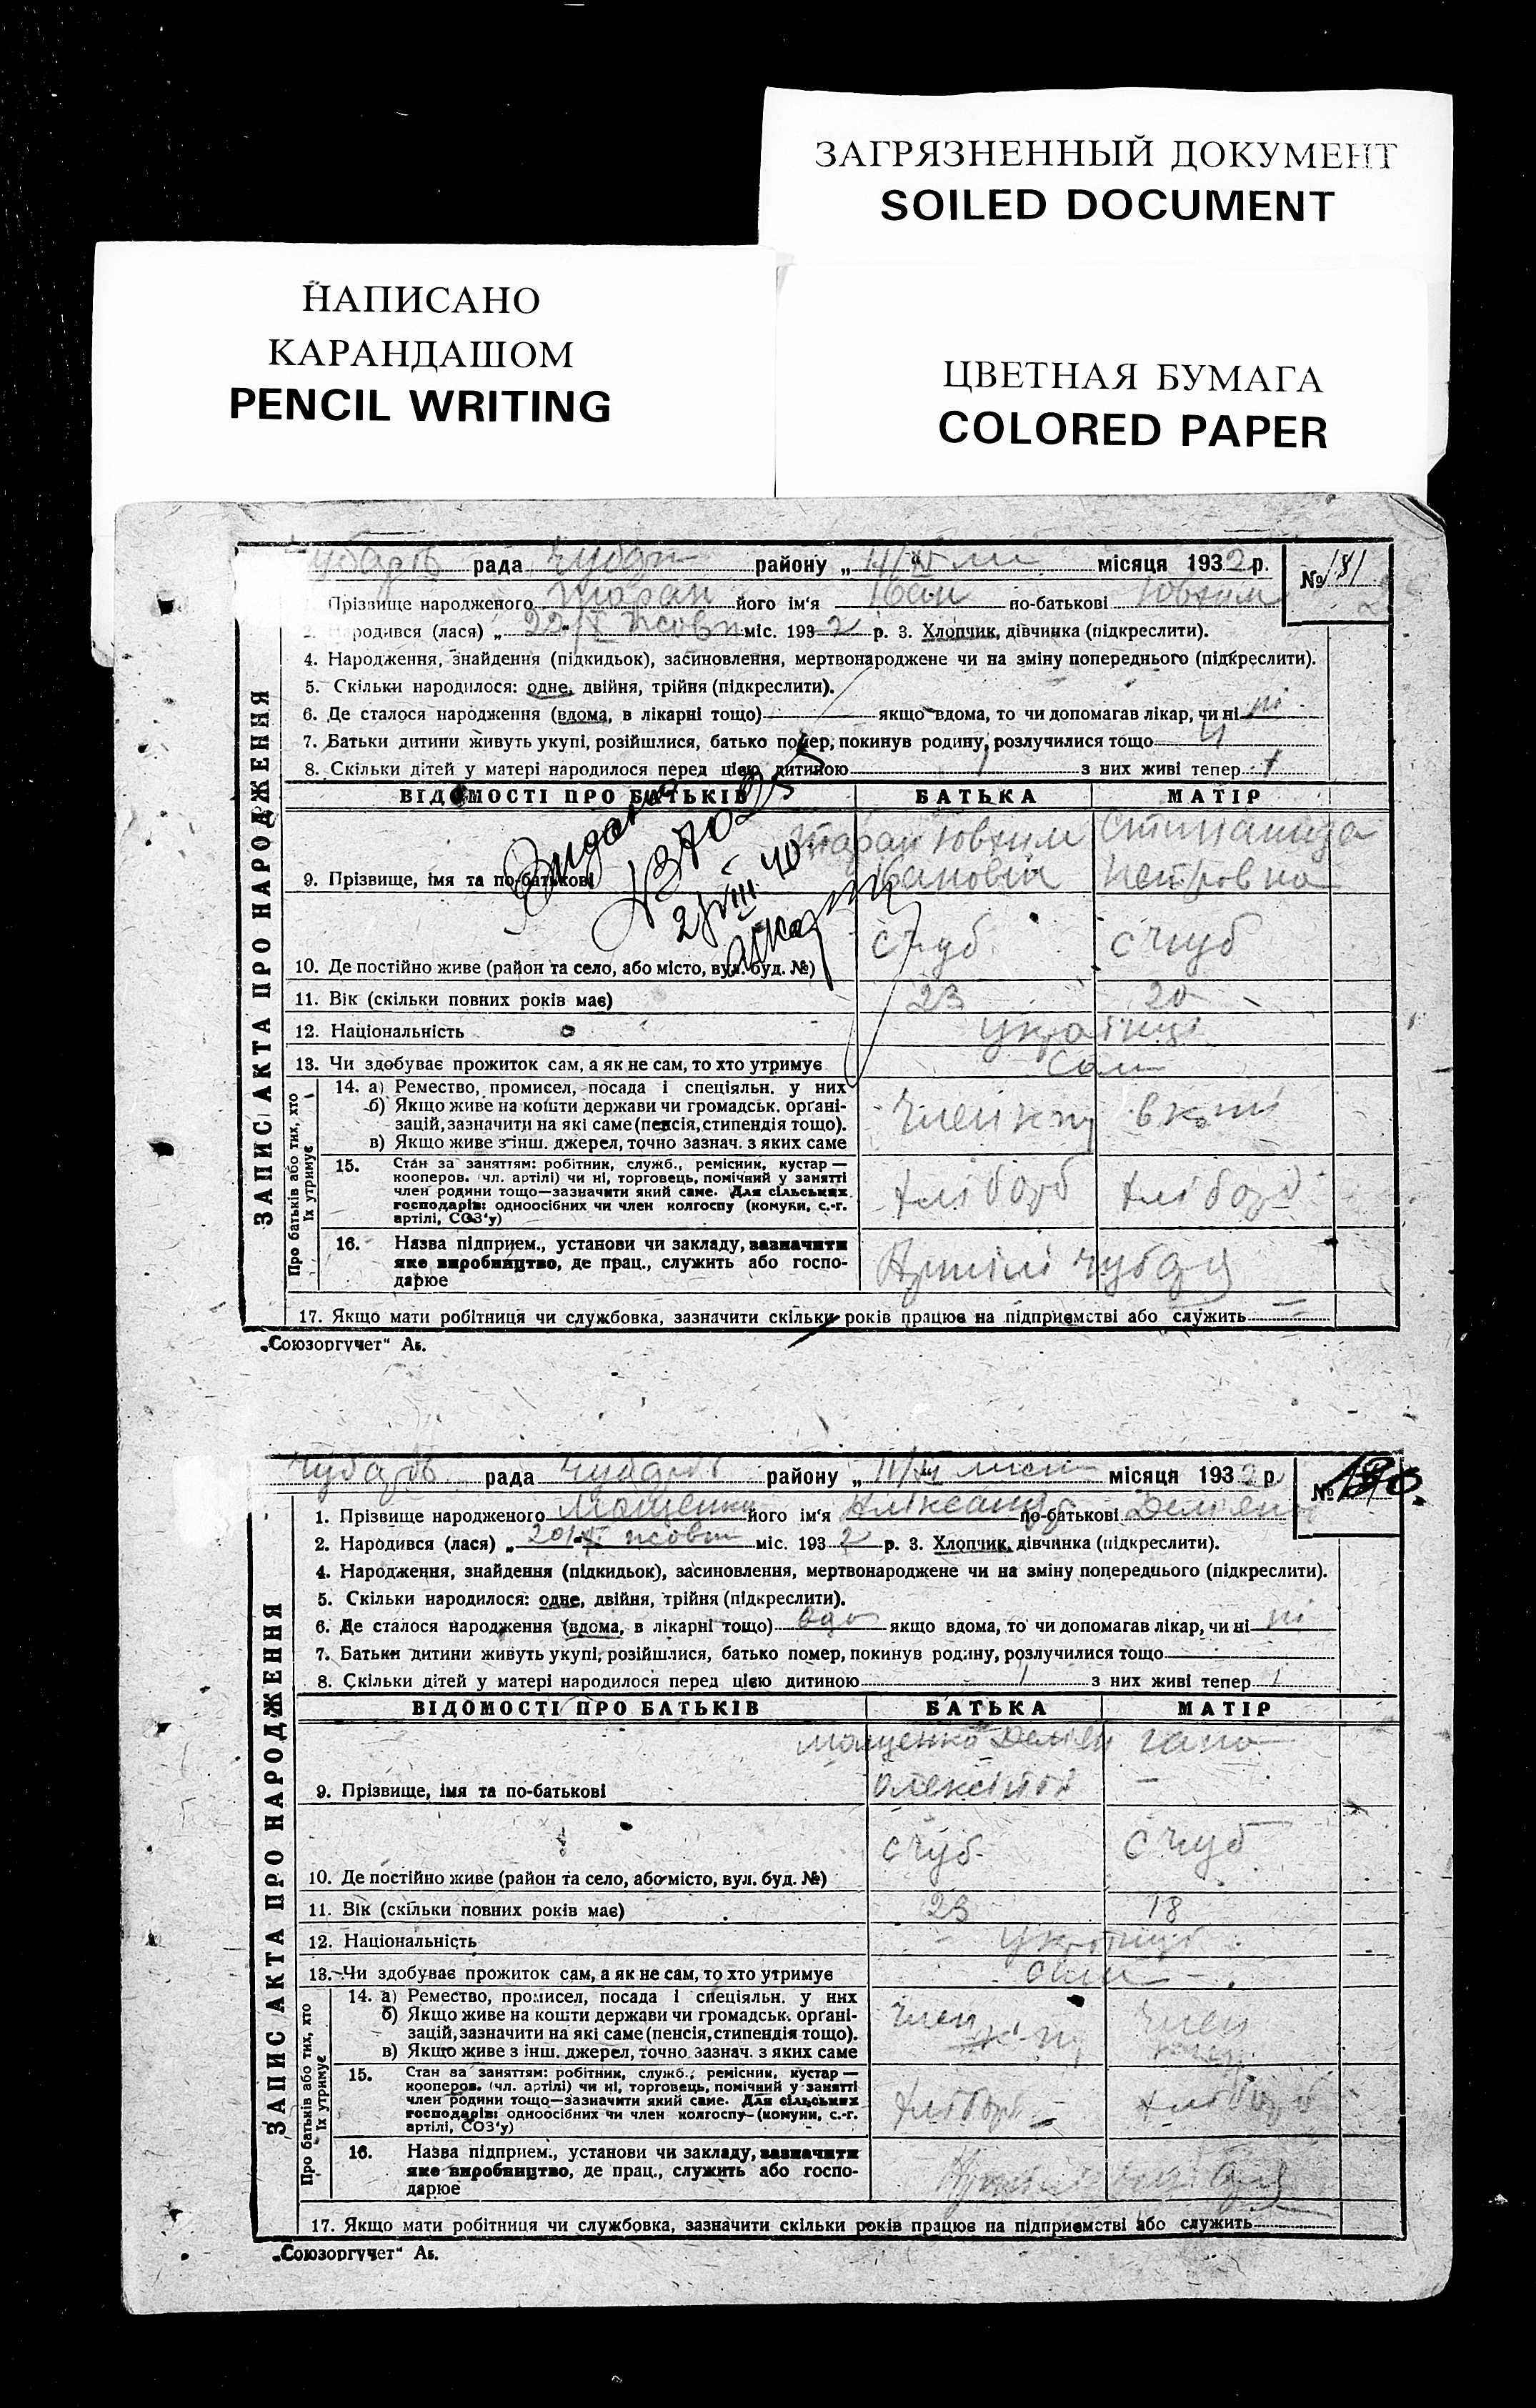 ЗАГРЯЗНЕННЫЙ ДОКУМЕНТ
SOILED DOCUMENT
НАПИСАНО
КАРАНДАШОМ
PENCIL WRITING
ЦВЕТНАЯ БУМАГА
COLORED PAPER
ЗАПИС АКТА ПРО НАРОДЖЕННЯ
рада району „ місяця 1932 р. № 181
Прізвище народженого Таран його ім'я Іван по-батькові Ювхим
2. Народився (лася) „ 22 X жовт міс. 1932 р. 3. Хлопчик, дівчинка (підкреслити).
4. Народження, знайдення (підкидьок), засиновлення, мертвонароджене чи на зміну попереднього (підкреслити).
5. Скільки народилося: одне, двійня, трійня (підкреслити).
6. Де сталося народження (вдома, в лікарні тощо) якщо вдома, то чи допомагав лікар, чи ні ні
7. Батьки дитини живуть укупі, розійшлися, батько помер, покинув родину, розлучилися тощо
8. Скільки дітей у матері народилося перед цією дитиною 1 з них живі тепер 1
ВІДОМОСТІ ПРО БАТЬКІВ БАТЬКА МАТІР
Таран Ювхим
9. Прізвище, імя та по-батькові Іванович Петровна
с чуб с чуб
10. Де постійно живе (район та село, або місто, вул. буд. №)
11. Вік (скільки повних років має) 23 20
12. Національність українці
13. Чи здобуває прожиток сам, а як не сам, то хто утримує сам
Про батьків або тих, хто їх утримує
14. а) Ремество, промисел, посада і спеціяльн. у них
б) Якщо живе на кошти держави чи громадськ. орґані-
зацій, зазначити на які саме (пенсія, стипендія тощо). член
в) Якщо живе з інш. джерел, точно зазнач. з яких саме
15. Стан за заняттям: робітник, служб., ремісник, кустар —
кооперов. (чл. артілі) чи ні, торговець, помічний у занятті
член родини тощо—зазначити який саме. Для сільських
господарів: одноосібних чи член колгоспу (комуни, с.-г. хлібороб хлібороб
артілі, СОЗ'у)
16. Назва підприєм., установи чи закладу, зазначити
яке виробництво, де прац., служить або госпо-
дарює
17. Якщо мати робітниця чи службовка, зазначити скільки років працює на підприємстві або служить
„Союзоргучет“ Аз.
ЗАПИС АКТА ПРО НАРОДЖЕННЯ
рада району „ місяця 1932 р. №
1. Прізвище народженого Мащенко його ім'я по-батькові
2. Народився (лася) „ 20 X жовт міс. 1932 р. 3. Хлопчик, дівчинка (підкреслити).
4. Народження, знайдення (підкидьок), засиновлення, мертвонароджене чи на зміну попереднього (підкреслити).
5. Скільки народилося: одне, двійня, трійня (підкреслити).
6. Де сталося народження (вдома, в лікарні тощо) якщо вдома, то чи допомагав лікар, чи ні ні
7. Батьки дитини живуть укупі, розійшлися, батько помер, покинув родину, розлучилися тощо
8. Скільки дітей у матері народилося перед цією дитиною 1 з них живі тепер 1
ВІДОМОСТІ ПРО БАТЬКІВ БАТЬКА МАТІР
Мащенко
9. Прізвище, імя та по-батькові
с чуб с чуб
10. Де постійно живе (район та село, або місто, вул. буд. №)
11. Вік (скільки повних років має) 23 18
12. Національність українці
13. Чи здобуває прожиток сам, а як не сам, то хто утримує сам
Про батьків або тих, хто їх утримує
14. а) Ремество, промисел, посада і спеціяльн. у них
б) Якщо живе на кошти держави чи громадськ. орґані- член член
зацій, зазначити на які саме (пенсія, стипендія тощо).
в) Якщо живе з інш. джерел, точно зазнач. з яких саме
15. Стан за заняттям: робітник, служб., ремісник, кустар —
кооперов. (чл. артілі) чи ні, торговець, помічний у занятті
член родини тощо—зазначити який саме. Для сільських
господарів: одноосібних чи член колгоспу (комуни, с.-г.
артілі, СОЗ'у)
16. Назва підприєм., установи чи закладу, зазначити
яке виробництво, де прац., служить або госпо-
дарює
17. Якщо мати робітниця чи службовка, зазначити скільки років працює на підприємстві або служить
„Союзоргучет“ Аз.